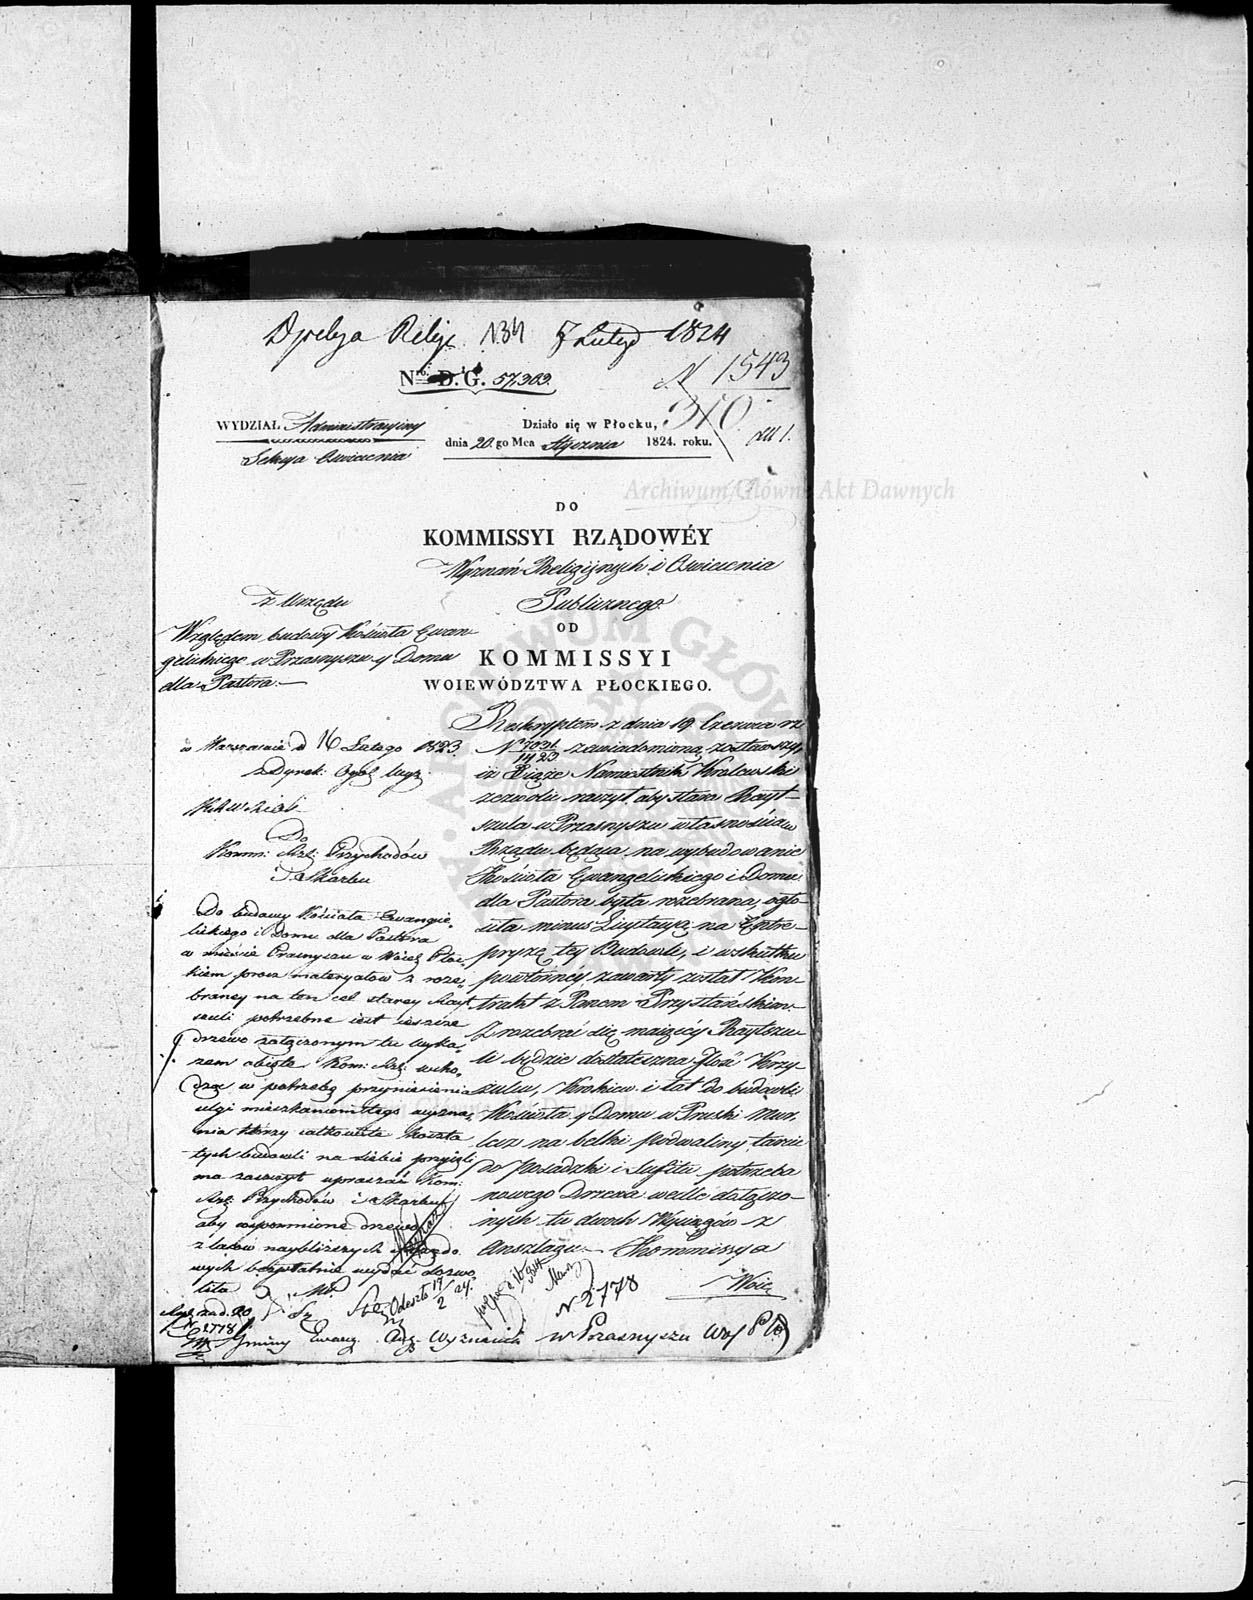 Relig. 134 5 Lutego 1824
Nro. D. G. 57,303.
N 1543
310
WYDZIAŁ Administracyiny
Sekcya Oswiecenia
Działo się w Płocku,
dnia 20. go Mca Stycznia 1824. roku.
Archiwum Główne Akt Dawnych
DO
KOMMISSYI RZĄDOWÉY
Wyznań Religijnych i Oswiecenia
Publicznego
OD
KOMMISSYI
WOIEWÓDZTWA PŁOCKIEGO.
z Urzędu
Względem budowy Kościoła Ewan-
gelickiego w Przasnyszu y Domu
dla Pastora.—
Reskryptem z dnia 19 Czerwca r. z.
No 7031/1423 zawiadomioną zostawszy,
iż Xiąże Namiestnik Krolewski
zezwolić raczył aby stara Rayt-
szula w Przasnyszu własnością
Rządu będąca na wybudowanie
Kościoła Ewangelickiego i Domu
dla Pastora była rozebraną, ogło-
siła minus Licytacyą na Entre-
pryzę tey Budowli, i w skutku
powtórnéy zawarty został Kon-
trakt z Panem Przystańskim.
Z rozebrać się maiącéy Raytszu-
li będzie dostateczna Ilość Krzy-
zulcu, Krokiew i łat do budowli
Kościoła y Domu w Pruski Mur,
lecz na belki podwaliny tarcie
do posadzki i sufitu potrzeba
nowego Drzewa wedle dołączo-
nych tu dwoch Wyciągów z
Anszlagu.— Kommissya
Woie
w Warszawie d 16 Lutego 1823.
z Dyrek. Ogol.
Do
Kommi: Rzł: Przychodów
i Skarbu
Do budowy Kościoła Ewangie-
lickiego i Domu dla Pastora
w mieście Przasnyszu w Wdzt Płoc
kiem procz materyałow z roze-
braney na ten cel starey Rayt
szuli potrzebne iest ieszcze
drzewo załączonym tu wyka-
zem obięte Kom: Rzł: wcho-
dząc w potrzebę przyniesienia
ulgi mieszkańcom tego wyzna-
nia którzy całkowite koszta
tych budowli na siebie przyięli
ma zaszczyt upraszać Kom:
Rzł: Przychodów i Skarbu
aby wspomnione drzewo
z lasów naybliższych Rządo-
wych bezpłatnie wydać dozwo
liła
Odeszło 17/2 24.
N 2778
N 2778
Gminy Ewang. Augs. Wyznania w Przasnyszu Woj Pł.